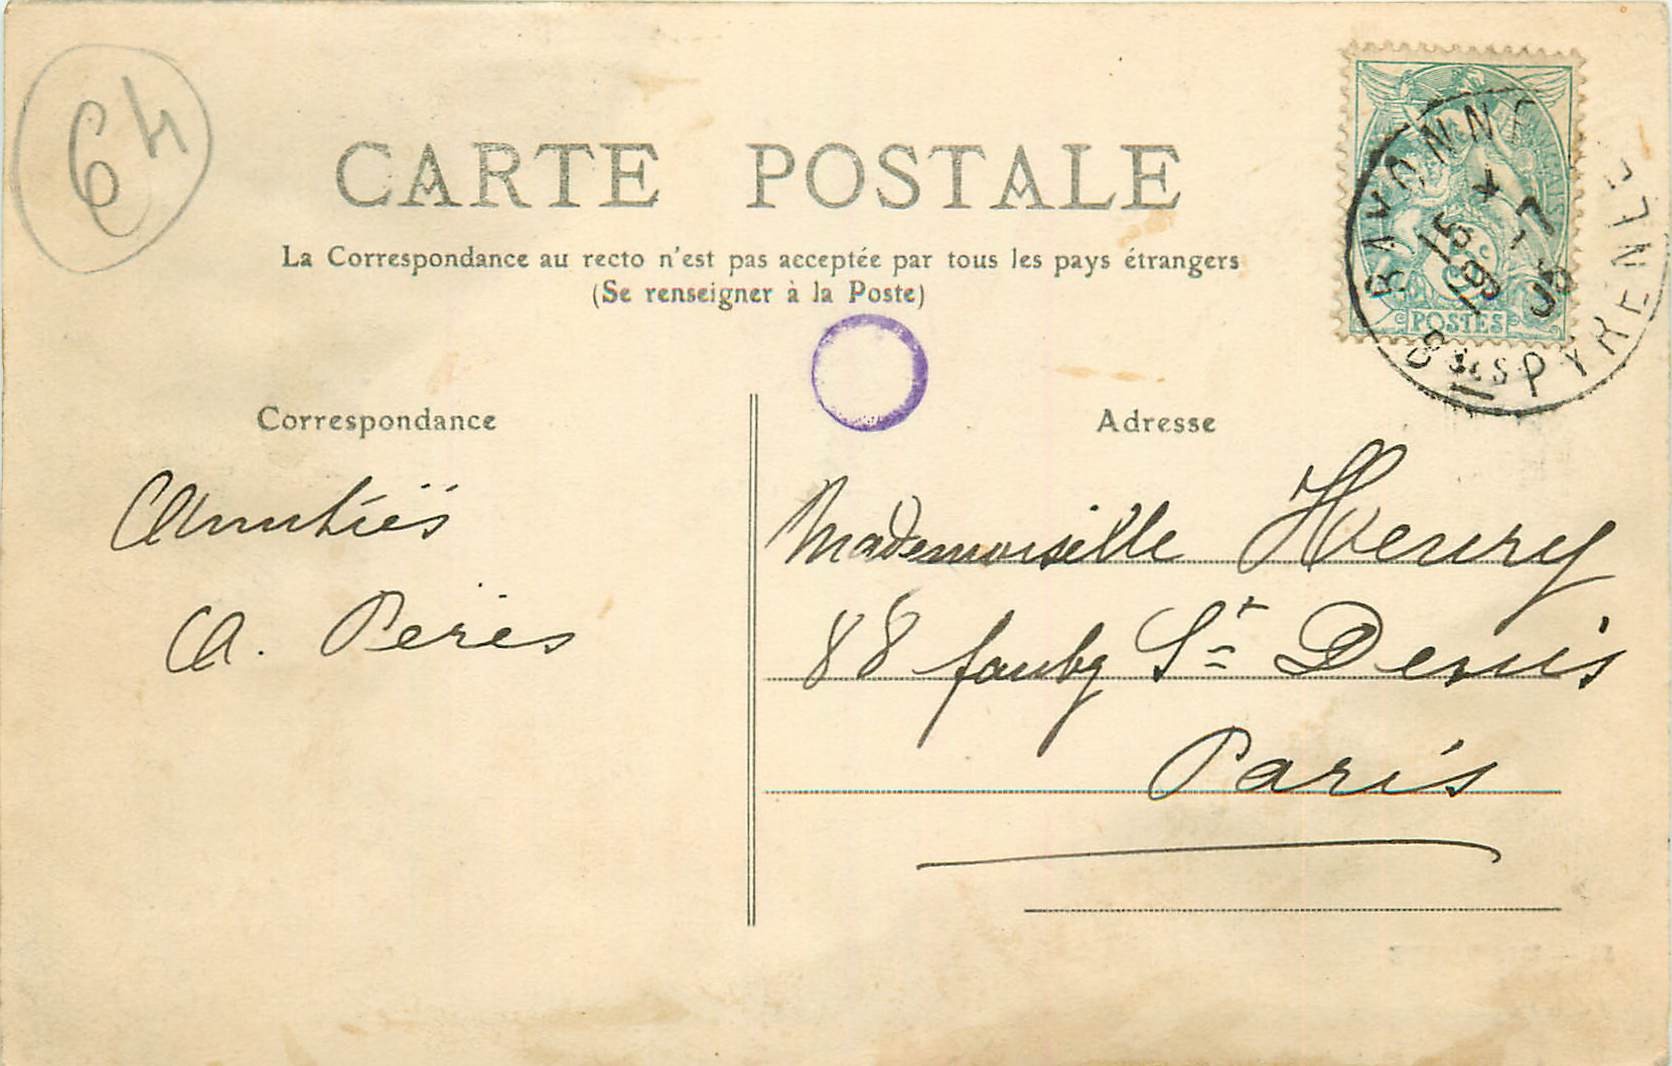 64
CARTE POSTALE
La Correspondance au recto n'est pas acceptée par tous les pays étrangers
(Se renseigner à la Poste)
5c
POSTES
BAYONNE
15 - 7
05
Bses PYRENEE
Correspondance
Amitiés
A. Peres
Adresse
Mademoiselle Henry
88 faubg St Denis
Paris